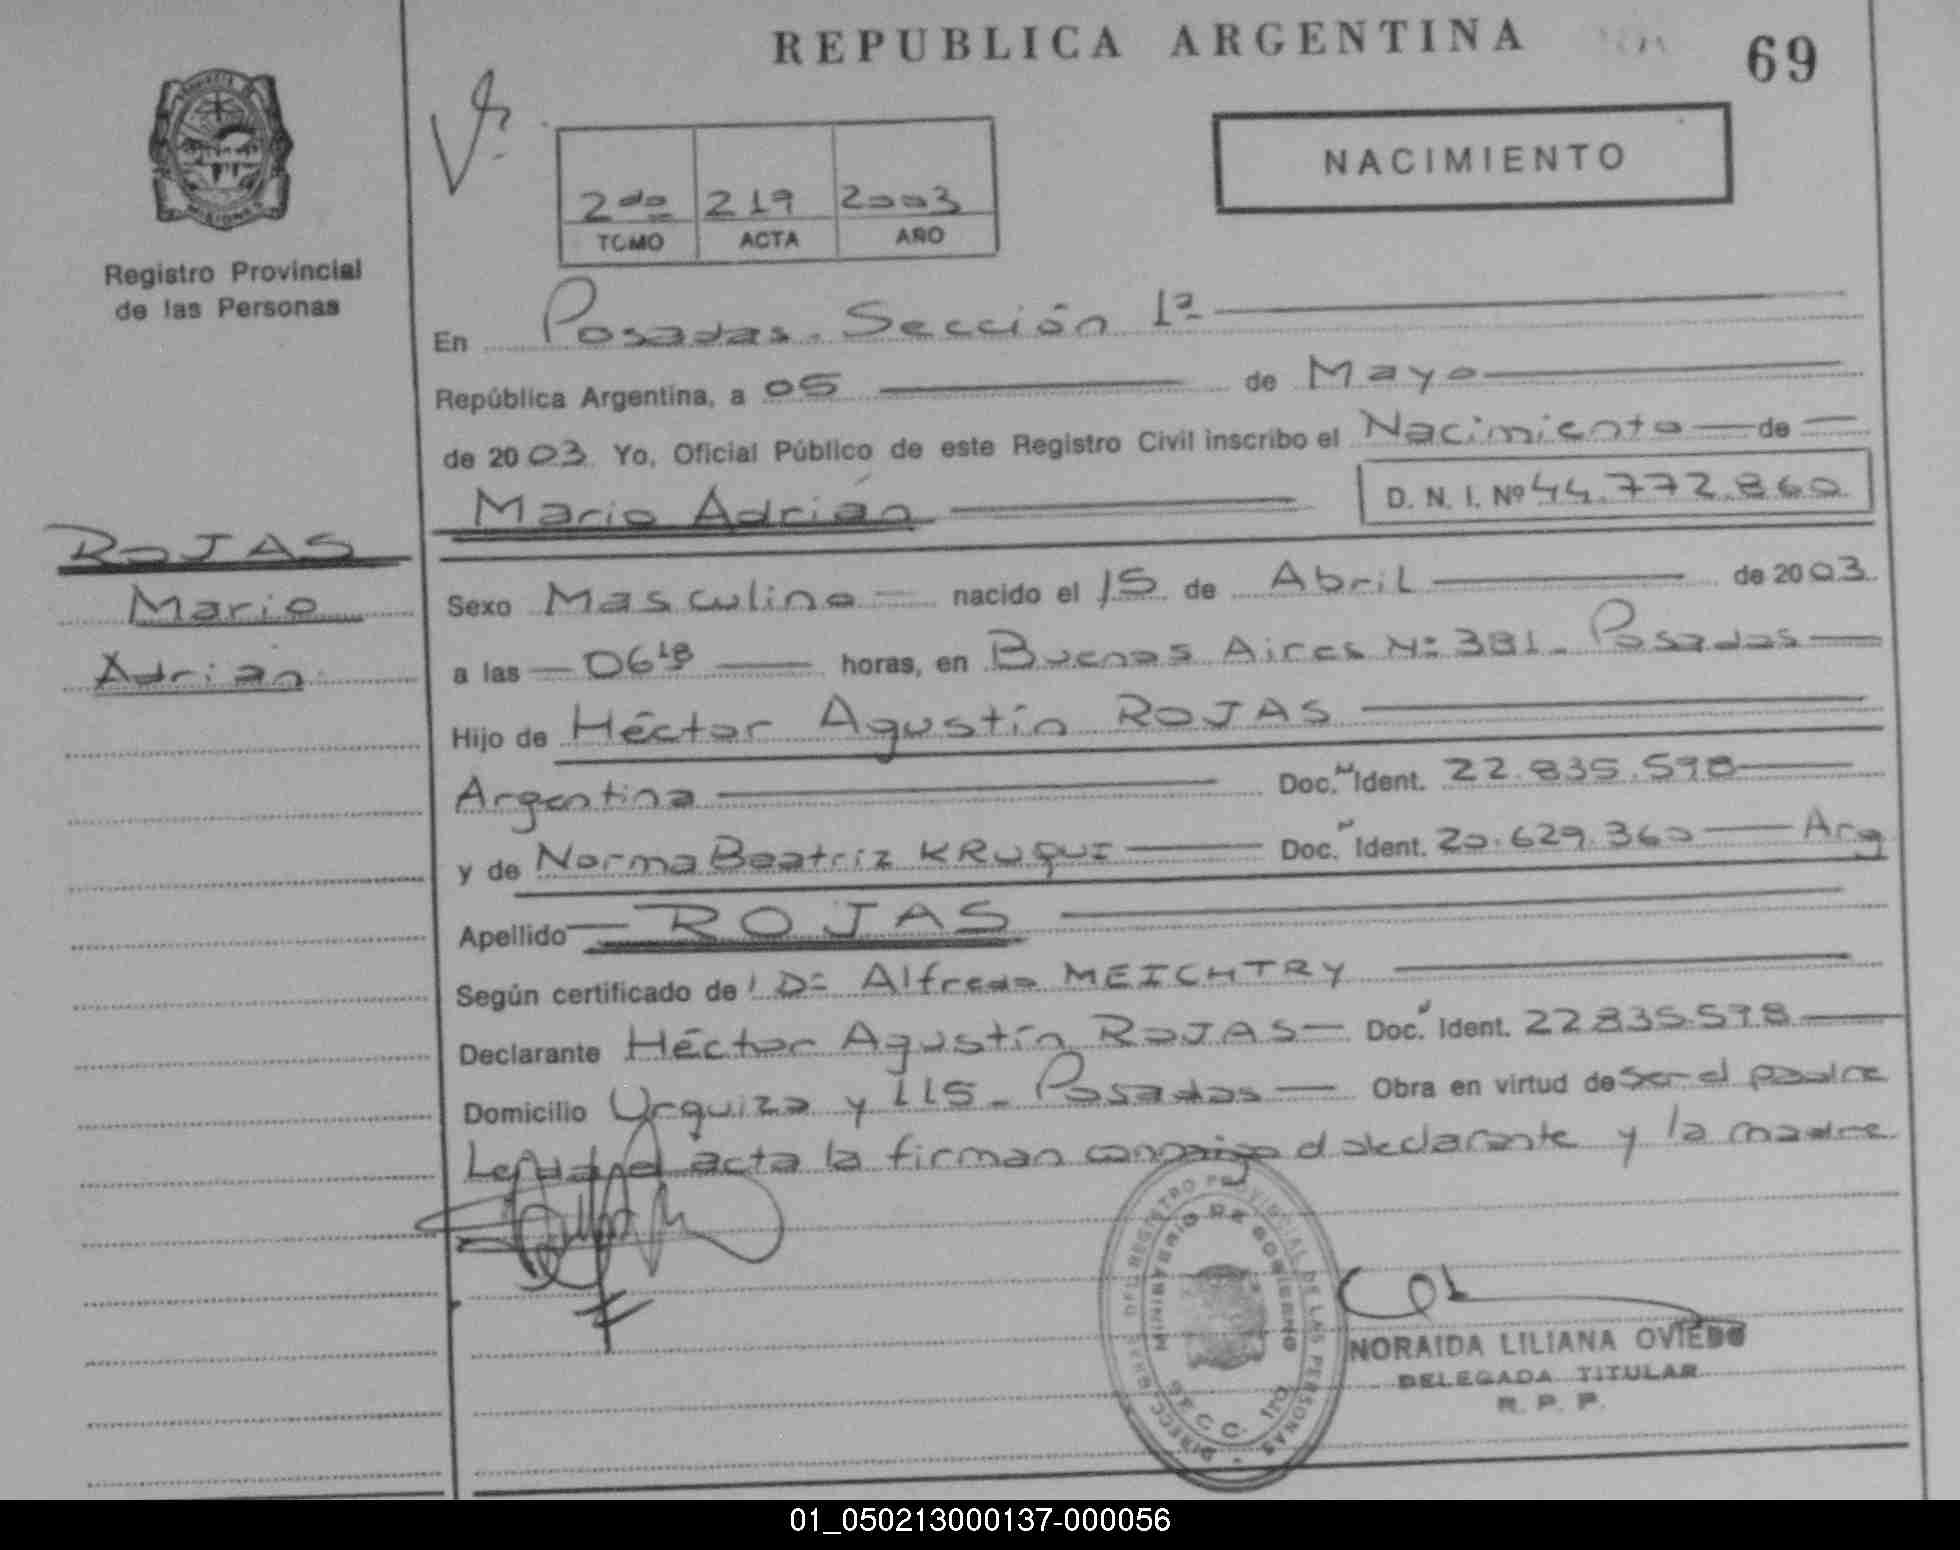 REPUBLICA ARGENTINA
69
NACIMIENTO
2do 219 2003
TOMO ACTA AÑO
Registro Provincial
de las Personas
En Posadas. Sección 1ª
República Argentina, a 05 de Mayo
de 2003 Yo, Oficial Público de este Registro Civil inscribo el Nacimiento de
Mario Adrián D. N. I. Nº 44.772.860
ROJAS
Mario
Adrián
Sexo Masculino nacido el 15 de Abril de 2003
a las 06 18 horas, en Buenos Aires Nº 381. Posadas
Hijo de Héctor Agustín ROJAS
Argentina Doc. Ident. 22.835.598
y de Norma Beatriz KRUQUI Doc. Ident. 20.629.360 Arg
Apellido ROJAS
Según certificado de Dr Alfredo MEICHTRY
Declarante Héctor Agustín ROJAS Doc. Ident. 22835598
Domicilio Urquiza y 115. Posadas Obra en virtud de ser el padre
Leída el acta la firman conmigo el declarante y la madre
DIRECC. GRAL. DEL REGISTRO PROVINCIAL DE LAS PERSONAS
MINISTERIO DE GOBIERNO
SECC. 1ro
NORAIDA LILIANA OVIEDO
DELEGADA TITULAR
R. P. P.
01_050213000137-000056